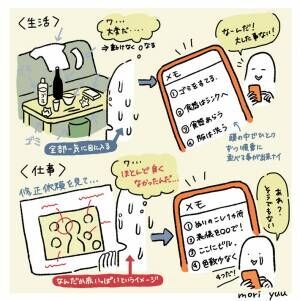 〈生活〉
ワ...
大変だ...
→動けなくなる
ゴミ
全部一気に目に入る
メモ
①ゴミをすてる
②食器はシンクへ
③食器あらう
④服は洗う
なーんだ!
大した事ない!
頭の中でひとつ
ずつ順番に
並べる事が出来ナイ
〈仕事〉
修正依頼を見て...
ワ...
ほとんど良く
なかったんだ...
なんだか赤いっぱいというイメージ
メモ
①ぬりのこし1ヶ所
②表情を〇〇で!
③ここにビル。
④色数少なく
4つだ!
あれ?
そうでもない
mori yuu